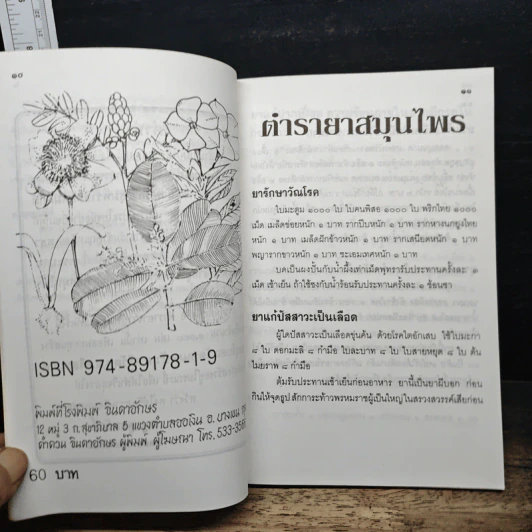 ๑๐
ISBN 974-89178-1-9
พิมพ์ที่โรงพิมพ์ จินดาอักษร
12 หมู่ 3 ถ.สุขาภิบาล 5 แขวงตำบลออเงิน อ. บางเขน
จินดาอักษร ผู้พิมพ์ ผู้โฆษณา โทร. 533-35
60 บาท
๑๑
ตำรายาสมุนไพร
ยารักษาวัณโรค
ใบมะตูม ๑๐๐๐ ใบ ใบคนทิสอ ๑๐๐๐ ใบ พริกไทย ๑๐๐๐
เม็ด เมล็ดข่อยหนัก ๑ บาท รากปีบหนัก ๑ บาท รากหางนกยูงไทย
หนัก ๑ บาท เมล็ดผักข้าวหนัก ๑ บาท รากเสนียดหนัก ๑ บาท
พญารากขาวหนัก ๑ บาท ชะเอมเทศหนัก ๑ บาท
บดเป็นผงปั้นกับน้ำผึ้งเท่าเม็ดพุทรารับประทานครั้งละ ๑
เม็ด เช้าเย็น ถ้าใช้ชงกับน้ำร้อนรับประทานครั้งละ ๑ ช้อนชา
ยาแก้ปัสสาวะเป็นเลือด
ผู้ใดปัสสาวะเป็นเลือดขุ่นค้น ด้วยโรคไตอักเสบ ใช้ใบมะกา
๘ ใบ ดอกมะลิ ๘ กำมือ ใบละบาท ๘ ใบ ใบสายหยุด ๘ ใบ ต้น
ไมยราพ ๘ กำมือ
ต้มรับประทานเช้าเย็นก่อนอาหาร ยานี้เป็นยาผีบอก ก่อน
กินให้จุดธูป สักการะท้าวพรหมราชผู้เป็นใหญ่ในสรวงสวรรค์เสียก่อน